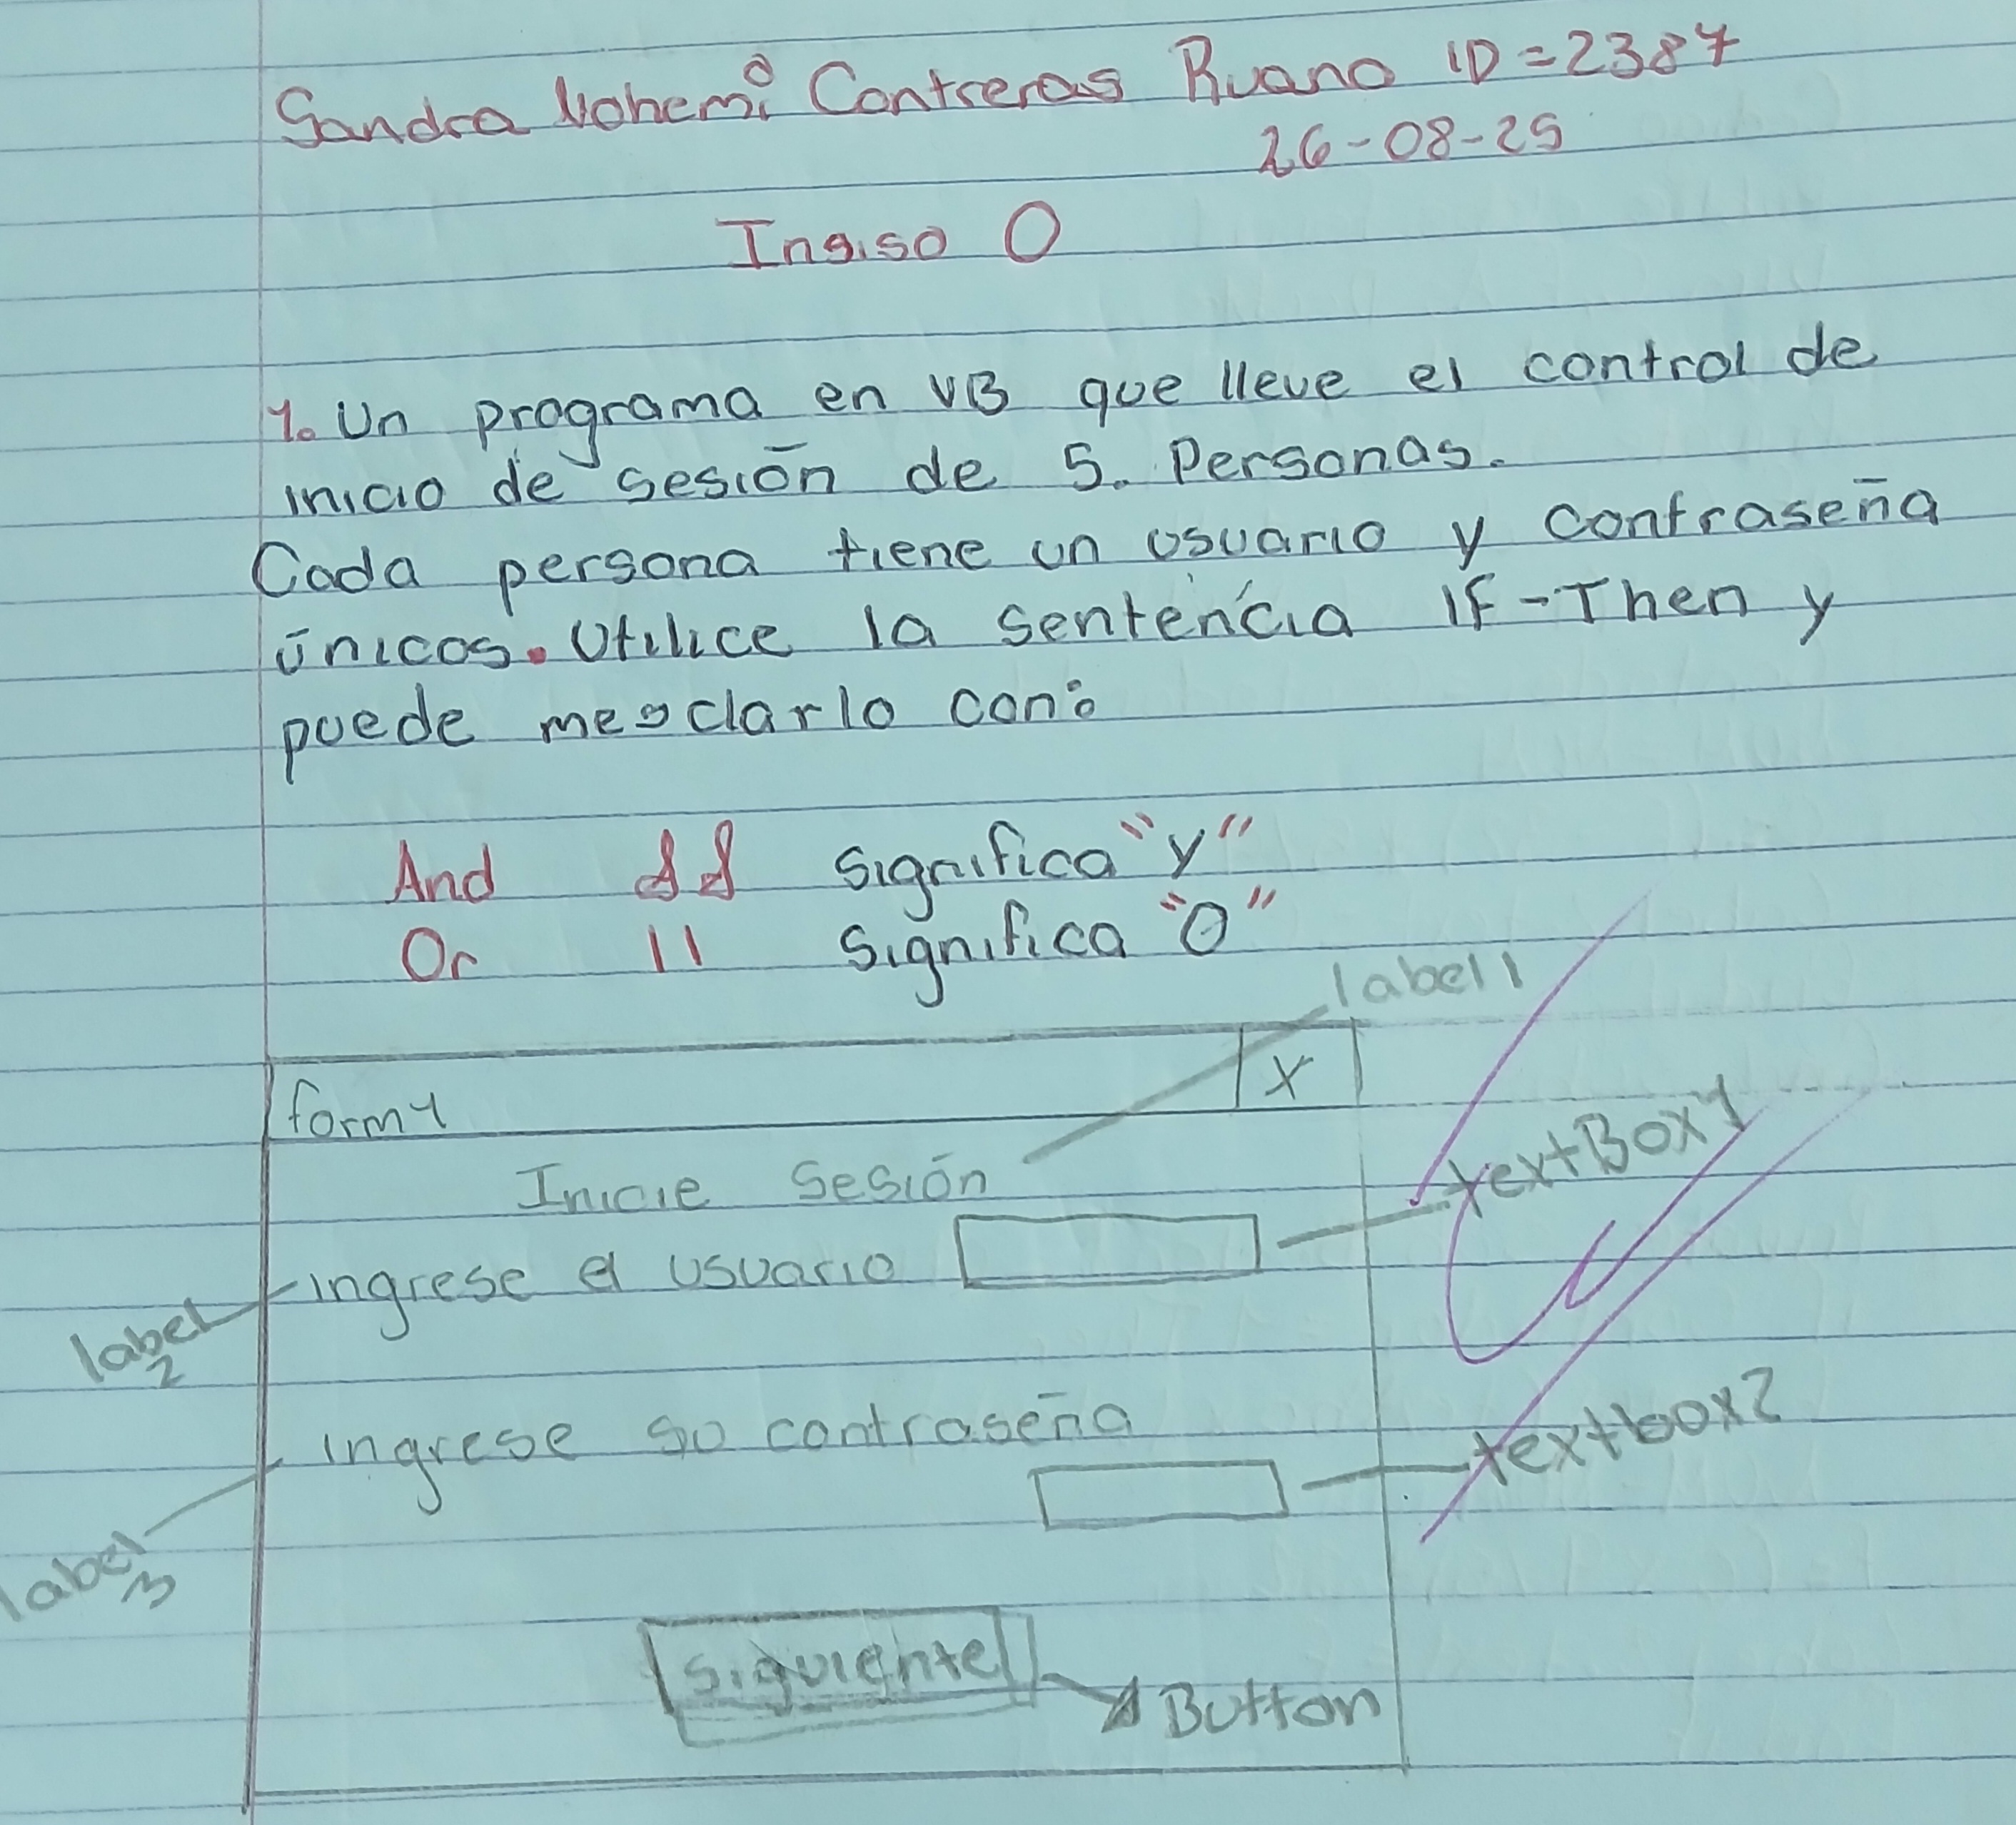 Sandra Nohemí Contreras Ruano ID = 2387
26-08-25
Ingiso O
1. Un programa en VB que lleve el control de
inicio de sesión de 5. Personas.
Cada persona tiene un usuario y contraseña
únicos. Utilice la sentencia IF-Then y
puede mesclarlo con:
And && significa "y"
Or || Significa "O"
label1
form1 X
Inicie Sesión
textBox1
ingrese el usuario
label 2
ingrese su contraseña
textbox2
label 3
Siguiente
Button